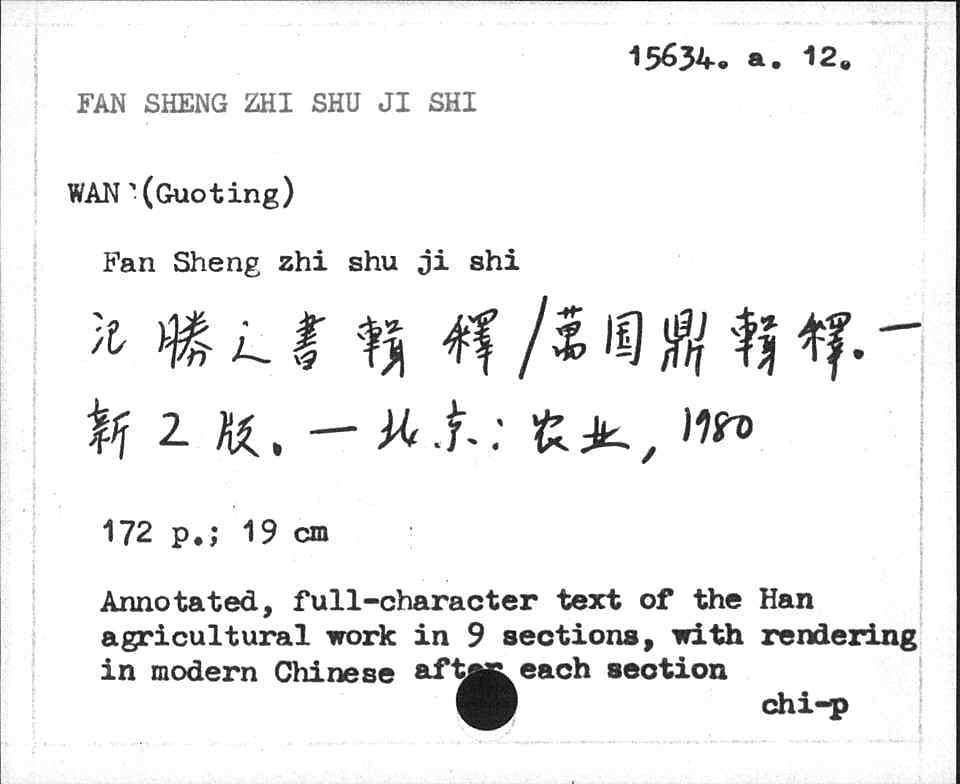 15634. a. 12.
FAN SHENG ZHI SHU JI SHI
WAN (Guoting)
Fan Sheng zhi shu ji shi
氾勝之書輯釋/萬国鼎輯釋.—
新2版.—北京:农业,1980
172 p.; 19 cm
Annotated, full-character text of the Han
agricultural work in 9 sections, with rendering
in modern Chinese after each section
chi-p